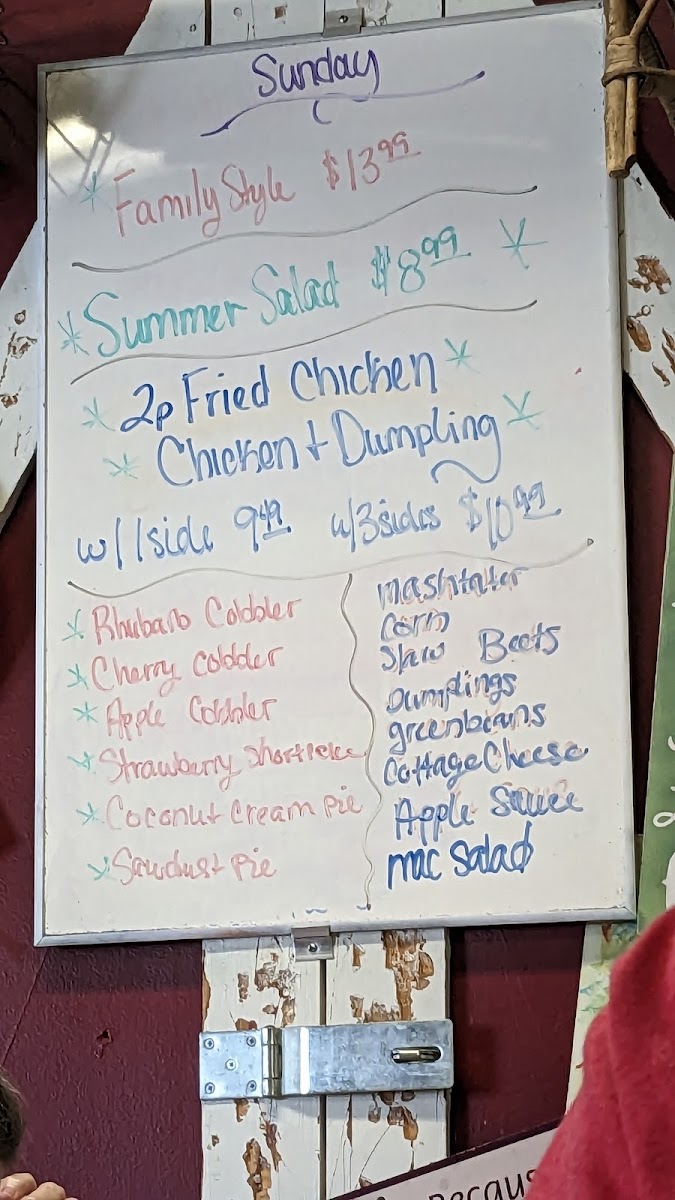 Sunday
Family Style $13.99
Summer Salad $8.99
2p Fried Chicken
Chicken + Dumpling
w/1 side 9.49 w/3 sides $10.99
Rhubarb Cobbler
Cherry Cobbler
Apple Cobbler
Strawberry Shortcake
Coconut Cream Pie
Sawdust Pie
mashtater
Corn
Slaw Beets
Dumplings
greenbeans
Cottage Cheese
Apple Sauce
mac Salad